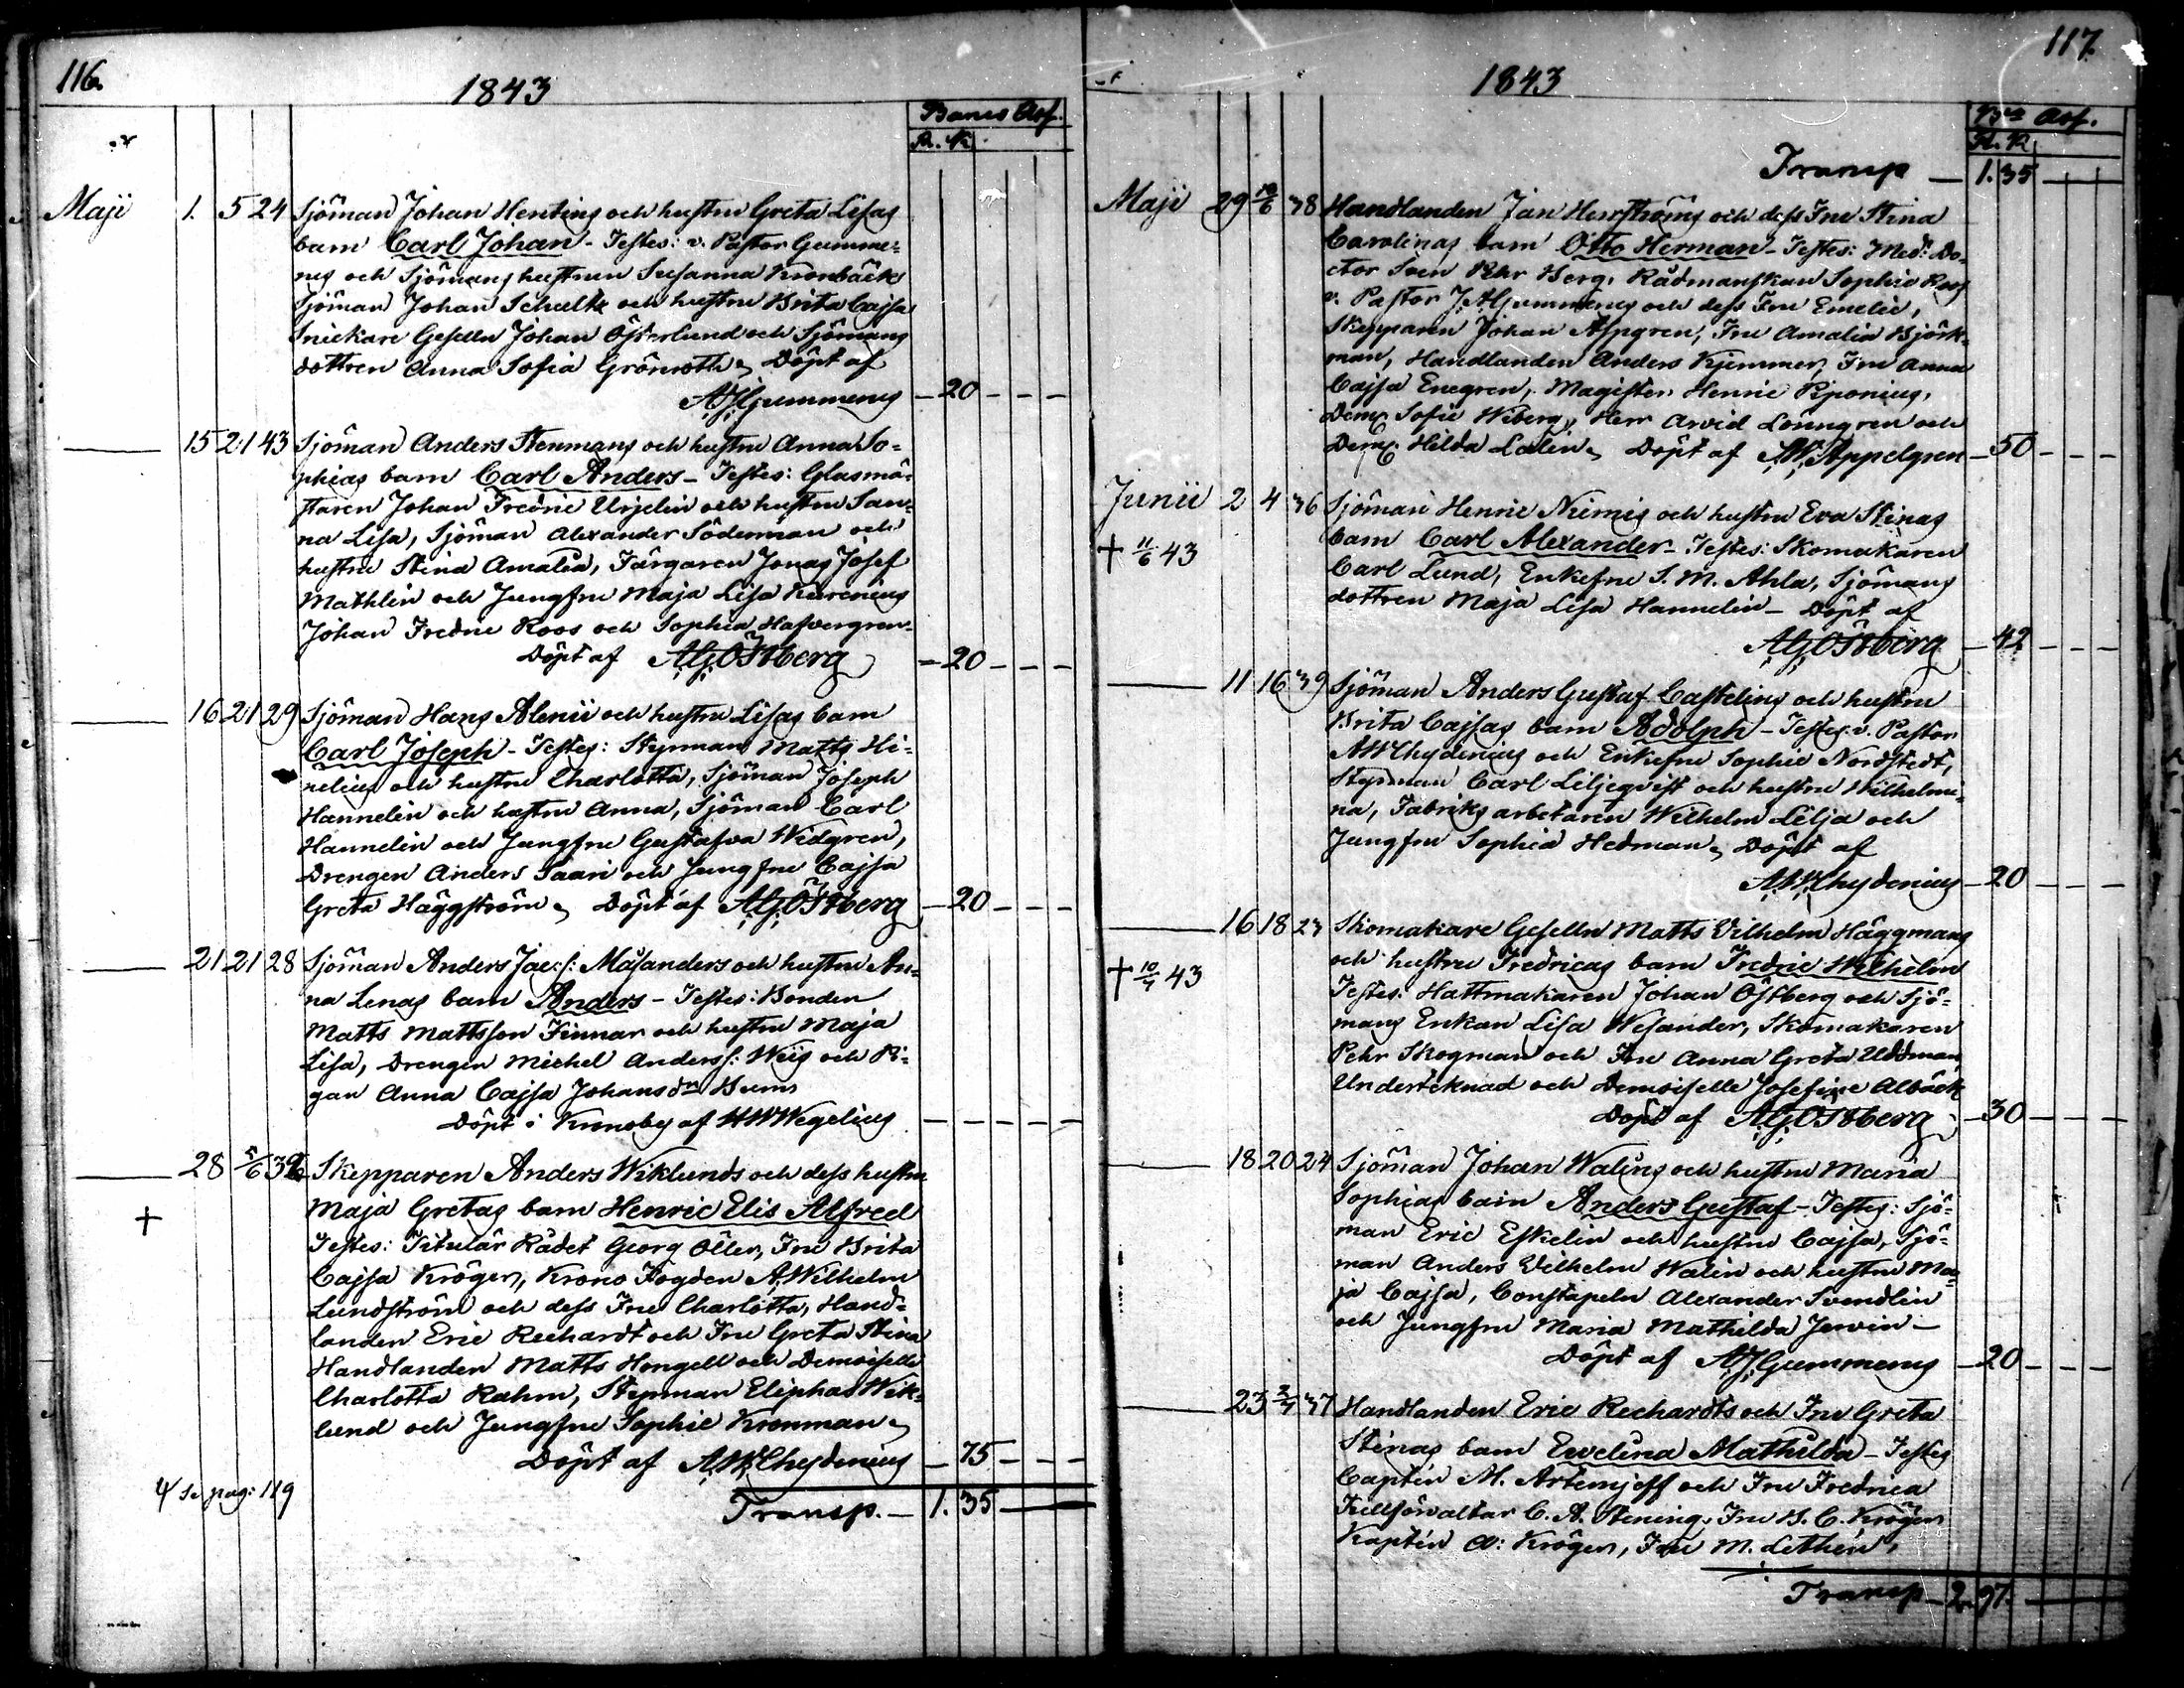 116.
1843
Banco Ass.
R. K.
Maji 1. 5 24 Sjöman Johan Hentins och hustru Greta Lisas
barn Carl Johan - Testes: v. Pastor Gumme-
rus och Sjömans hustrun Susanna Kronbäck
Sjöman Johan Schultz och hustru Brita Cajsa
Snickare Geselln Johan Österlund och Sjömans
dottren Anna Sofia Grönroth, Döpt af
AJGummerus — 20 — — —
15 21 43 Sjöman Anders Stenmans och hustru Anna So-
phias barn Carl Anders - Testes: Glasmä-
staren Johan Fredric Urjelin och hustru San-
na Lisa, Sjöman Alexander Söderman och
hustru Stina Amalia, Färgaren Jonas Josef
Mathlin och Jungfru Maja Lisa Kurenius
Johan Fredric Roos och Sophia Hafvergren
Döpt af AGÖstberg — 20 — — —
16 21 29 Sjöman Hans Alenii och hustru Lisas barn
Carl Joseph - Testes: Styrman Matts Hi-
nelius och hustru Charlotta, Sjöman Joseph
Hannelin och hustru Anna, Sjöman Carl
Hannelin och Jungfru Gustafva Widgren,
Drengen Anders Saari och Jungfru Cajsa
Greta Häggström, Döpt af AGÖstberg — 20 — — —
21 21 28 Sjöman Anders Jac:s: Måsanders och hustru An-
na Lenas barn Anders - Testes: Bonden
Matts Mattsson Finnar och hustru Maja
Lisa, Drengen Michel Anders s: Weis och Pi-
gan Anna Cajsa Johans dr
Döpt i af HWWegelius — — — —
28 5/6 39 Skepparen Anders Wiklunds och dess hustru
Maja Gretas barn Henric Elis Alfred
† Testes: Titulär Rådet Georg Öller, Fru Brita
Cajsa Kröger, Krono Fogden A. Wilhelm
Lundström och dess Fru Charlotta, Hand-
landen Eric Rechardt och Fru Greta Stina
Handlanden Matts Hongell och Demoiselle
Charlotta Rahm, Styrman Eliphas Wik-
lund och Jungfru Sophie Kronman,
Döpt af AWChydenius — 75 — — —
se pag: 119
Transp. — 1. 35
117.
1843
Bco Ass.
R. K.
Transp — 1. 35
Maji 29 10/6 38 Handlanden Jan Herrströms och dess Fru Stina
Carolinas barn Otto Herman - Testes: Med: Do-
ctor Sven Pehr Berg, Rådmanskan Sophie Roos
v. Pastor JAGummerus och dess Fru Emelie,
Skepparen Johan Aspgren, Fru Amalia Björk-
man, Handlanden Anders Kjemmer, Fru Anna
Cajsa Enegren, Magister Henric Piponius,
Dem: Sofie Wiberg, Herr Arvid Lönngren och
Dem: Hilda Calen, Döpt af AWAppelgren — 50 — — —
Junii 2 4 36 Sjöman Henric Niemis och hustru Eva Stinas
† 11/6 43 barn Carl Alexander - Testes: Skomakaren
Carl Lund, Enkefru S. M. Ahla, Sjömans
dottren Maja Lisa Hannelin - Döpt af
AGÖstberg — 42 — — —
11 16 39 Sjöman Anders Gustaf Castelins och hustru
Brita Cajsas barn Adolph - Testes: v. Pastor
AWChydenius och Enkefru Sophie Nordstedt,
Styrman Carl Liljeqvist och hustru Wilhelmi-
na, Fabriks arbetaren Wilhelm Lilja och
Jungfru Sophia Hedman, Döpt af
AWChydenius — 20 — — —
16 18 23 Skomakare Geselln Matts Vilhelm Häggmans
och hustru Fredricas barn Fredric Wilhelm
† 10/7 43 Testes: Hattmakaren Johan Östberg och Sjö-
mans Enkan Lisa Wesander, Skomakaren
Pehr Skogman och Fru Anna Greta Uddman,
Undertecknad och Demoiselle Josefine Albäck
Döpt af AGÖstberg — 30 — — —
18 20 24 Sjöman Johan Walins och hustru Maria
Sophias barn Anders Gustaf - Testes: Sjö-
man Eric Eskelin och hustru Cajsa, Sjö-
man Anders Vilhelm Walin och hustru Ma-
ja Cajsa, Constapeln Alexander Svendlin
och Jungfru Maria Mathilda Jervin -
Döpt af AJGummerus — 20 — — —
23 2/7 37 Handlanden Eric Rechardts och Fru Greta
Stinas barn Ewelina Mathilda - Testes
Captén M. Artemjeff och Fru Fredrica
Tullförvaltar C. A. Stening, Fru B. C. Kröger
Kaptén A: Kröger, Fru M. Lithén,
Transp — 2. 97.